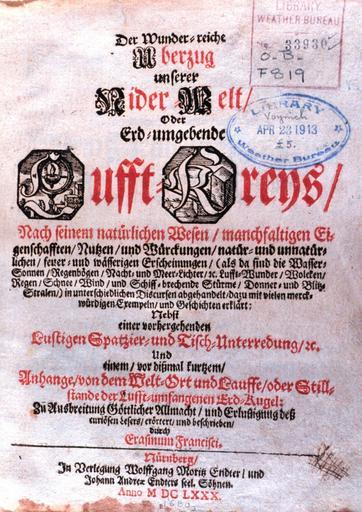 Der Wunder-reiche
Uberzug
unserer
Nider-Welt/
Oder
Erd-umgebende
Lufft-Kreys/
Nach seinem natürlichen Wesen/ manchfaltigen Ei-
genschafften/ Nutzen/ und Würckungen/ natür- und unnatür-
lichen/ feuer- und wässerigen Erscheinungen/ (als da sind die Wasser-
Sonnen/ Regenbögen/ Nacht- und Meer-Lichter/ ꝛc. Lufft-Wunder/ Wolcken/
Regen/ Schnee/ Wind/ und Schiff-brechende Stürme/ Donner- und Blitz-
Stralen/) in unterschiedlichen Discursen abgehandelt/ dazu mit vielen merck-
würdigen Exempeln/ und Geschichten erklärt:
Nebst
einer vorhergehenden
Lustigen Spatzier- und Tisch-Unterredung/ ꝛc.
Und
einem/ vor dißmal kurtzem/
Anhange/ von dem Welt-Ort und Lauffe/ oder Still-
stande der Lufft-umfangenen Erd-Kugel:
Zu Ausbreitung Göttlicher Allmacht/ und Erlustigung deß
curiösen Lesers/ erörtert/ und beschrieben/
durch
Erasmum Francisci.
Nürnberg/
In Verlegung Wolffgang Moritz Endter/ und
Johann Andreæ Endters seel. Söhnen.
Anno M DC LXXX.
1680
LIBRARY
WEATHER BUREAU
No. 33930
O.B.
F819
LIBRARY
Voynich
APR 23 1913
£5.
Weather Bureau